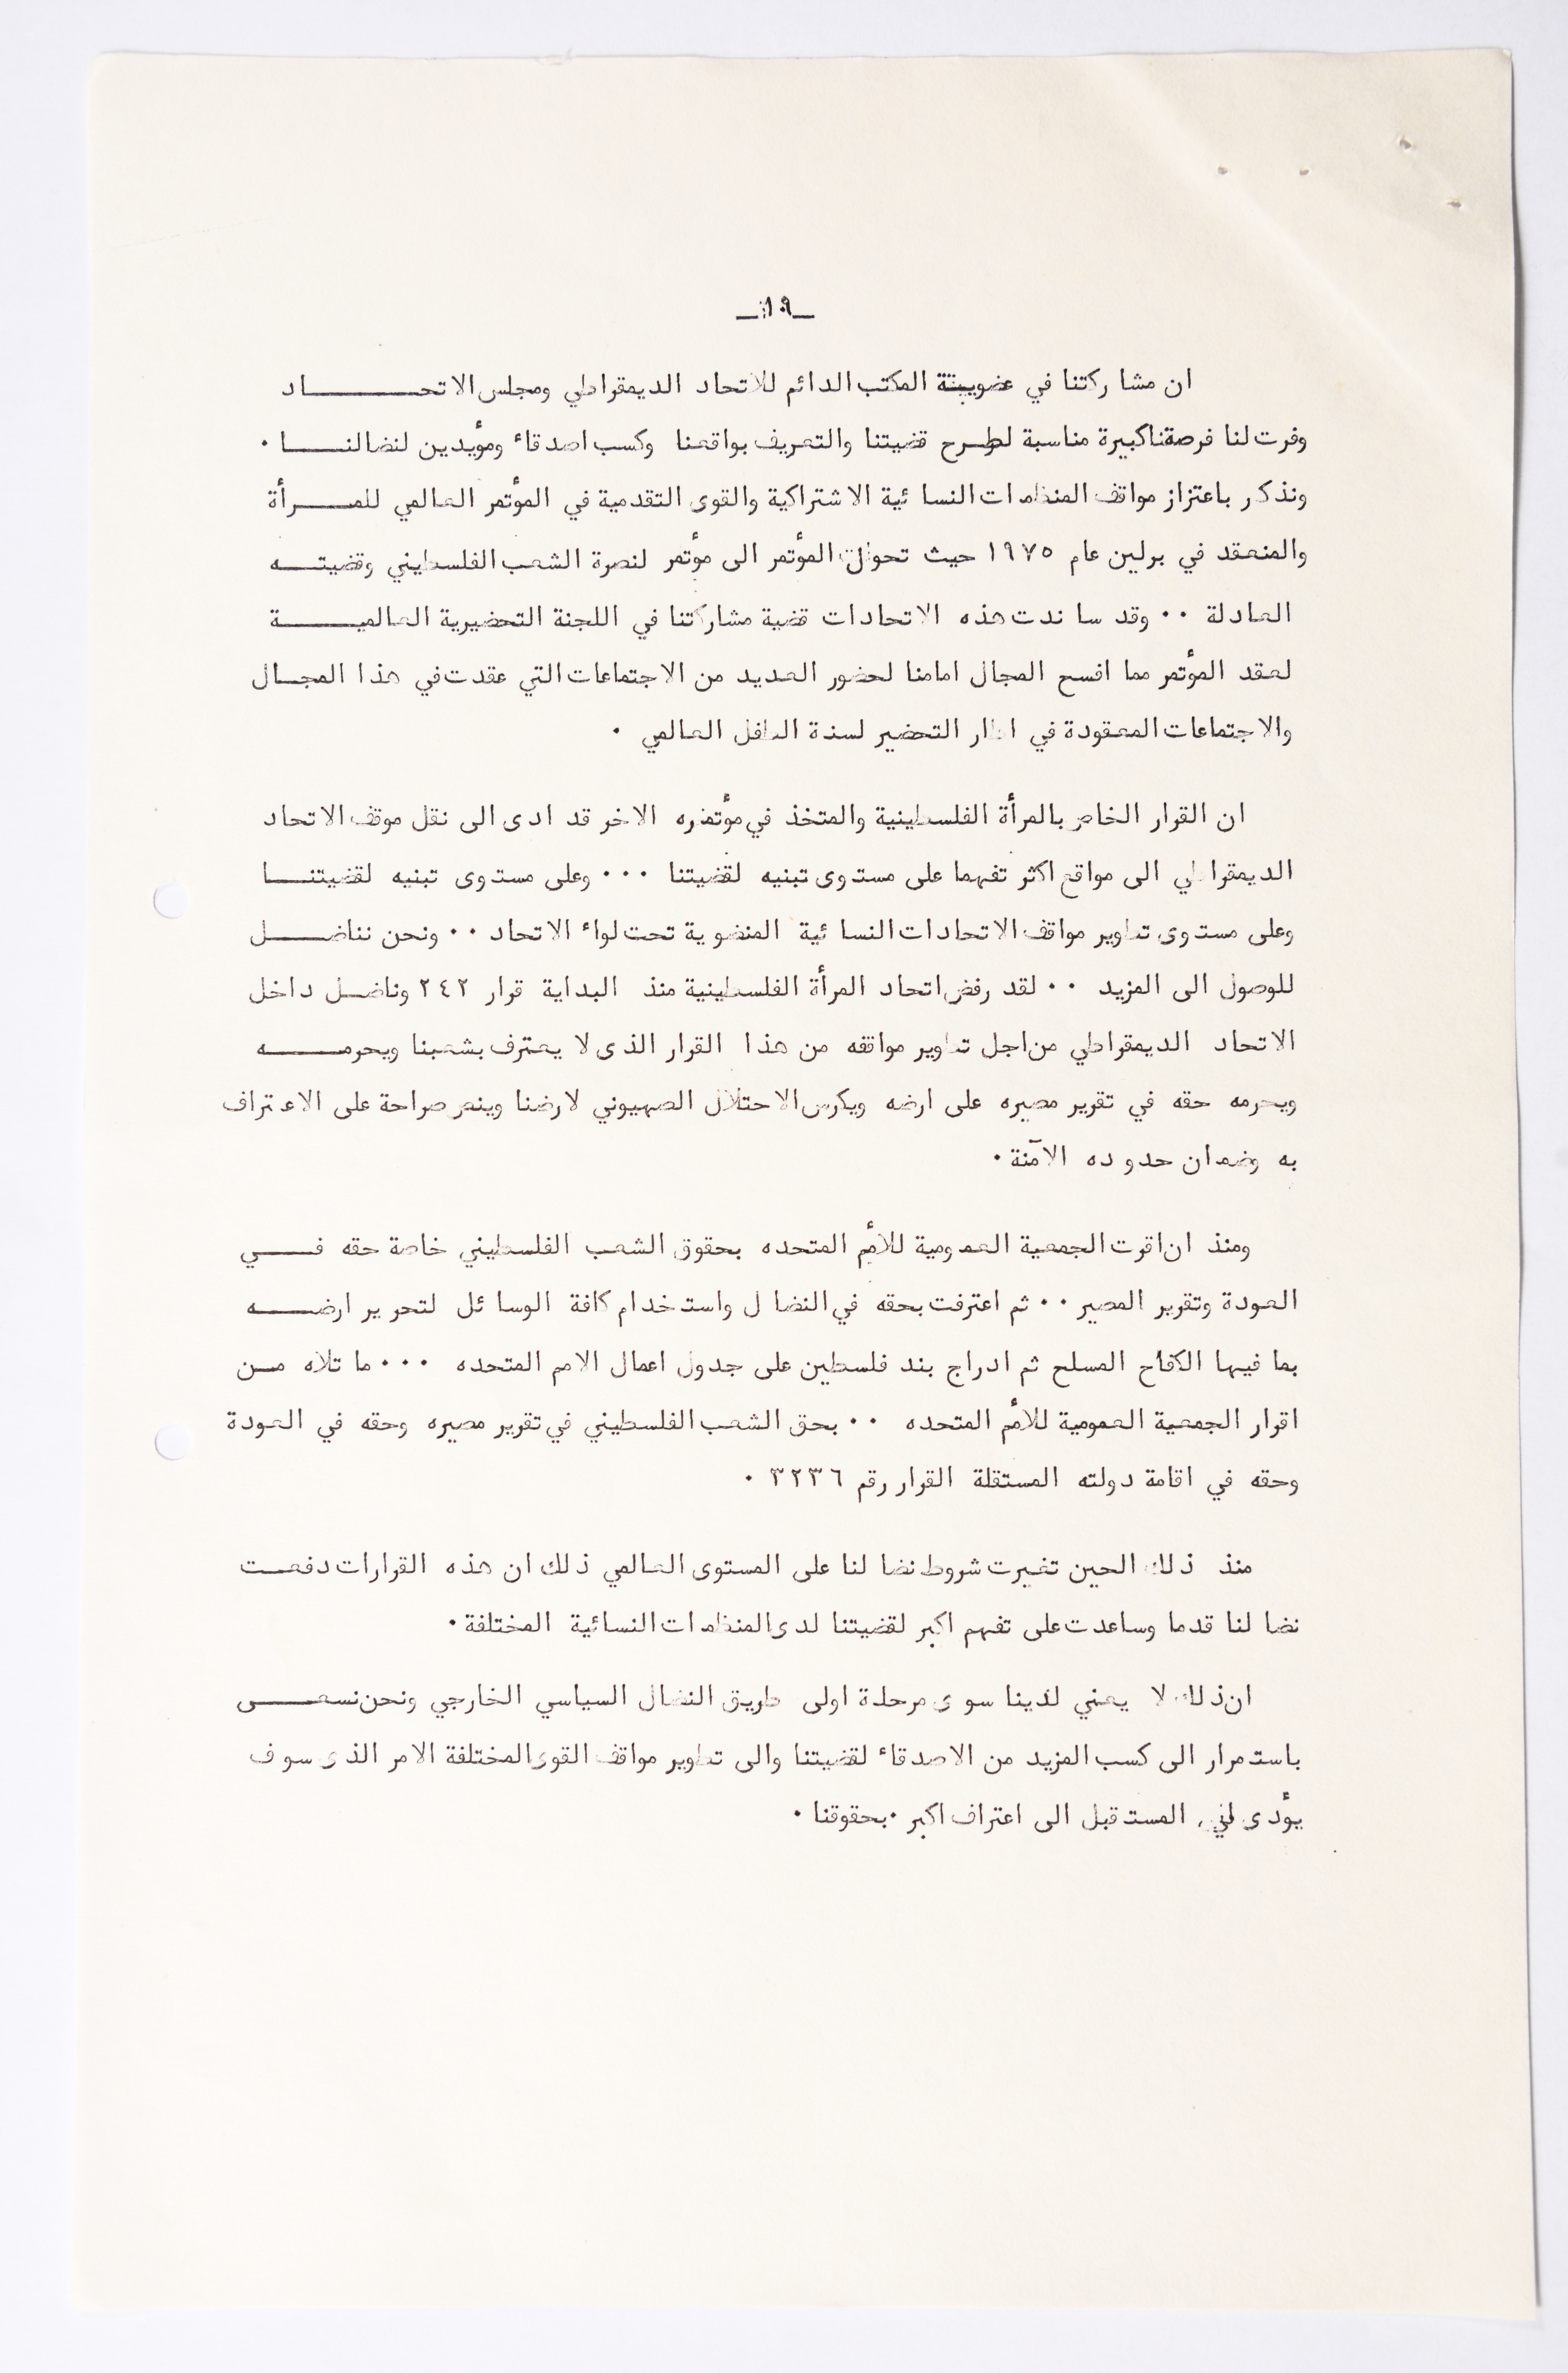 ـ١٩ـ
ان مشاركتنا في عضوية المكتب الدائم للاتحاد الديمقراطي ومجلس الاتحـــــاد
وفرت لنا فرصة كبيرة مناسبة لطرح قضيتنا والتعريف بواقعنا وكسب اصدقاء ومؤيدين لنضالنـــا ٠
ونذكر باعتزاز مواقف المنظمات النسائية الاشتراكية والقوى التقدمية في المؤتمر العالمي للمـــرأة
والمنعقد في برلين عام ١٩٧٥ حيث تحول المؤتمر الى مؤتمر لنصرة الشعب الفلسطيني وقضيتـــه
العادلة ٠٠ وقد ساندت هذه الاتحادات قضية مشاركتنا في اللجنة التحضيرية العالميـــــة
لعقد المؤتمر مما افسح المجال امامنا لحضور العديد من الاجتماعات التي عقدت في هذا المجـال
والاجتماعات المعقودة في اطار التحضير لسنة الطفل العالمي ٠
ان القرار الخاص بالمرأة الفلسطينية والمتخذ في مؤتمره الاخر قد ادى الى نقل موقف الاتحاد
الديمقراطي الى مواقع اكثر تفهما على مستوى تبنيه لقضيتنا ٠٠٠ وعلى مستوى تبنيه لقضيتنـــا
وعلى مستوى تطوير مواقف الاتحادات النسائية المنضوية تحت لواء الاتحاد ٠٠ ونحن نناضـــل
للوصول الى المزيد ٠٠ لقد رفض اتحاد المرأة الفلسطينية منذ البداية قرار ٢٤٢ وناضـل داخل
الاتحاد الديمقراطي من اجل تطوير مواقفه من هذا القرار الذى لا يعترف بشعبنا ويحرمـــــه
ويحرمه حقه في تقرير مصيره على ارضه ويكرس الاحتلال الصهيوني لارضنا وينص صراحة على الاعتراف
به وضمان حدوده الآمنة ٠
ومنذ ان اقرت الجمعية العمومية للأمم المتحده بحقوق الشعب الفلسطيني خاصة حقه فـــي
العودة وتقرير المصير ٠٠ ثم اعترفت بحقه في النضال واستخدام كافة الوسائل لتحرير ارضـــه
بما فيها الكفاح المسلح ثم ادراج بند فلسطين على جدول اعمال الامم المتحده ٠٠٠ ما تلاه مـن
اقرار الجمعية العمومية للأمم المتحده ٠٠ بحق الشعب الفلسطيني في تقرير مصيره وحقه في العودة
وحقه في اقامة دولته المستقلة القرار رقم ٣٢٣٦ ٠
منذ ذلك الحين تغيرت شروط نضالنا على المستوى العالمي ذلك ان هذه القرارات دفعـــت
نضالنا قدما وساعدت على تفهم اكبر لقضيتنا لدى المنظمات النسائية المختلفة ٠
ان ذلك لا يعني لدينا سوى مرحلة اولى طريق النضال السياسي الخارجي ونحن نسعـــى
باستمرار الى كسب المزيد من الاصدقاء لقضيتنا والى تطوير مواقف القوى المختلفة الامر الذى سوف
يؤدى في المستقبل الى اعتراف اكبر ٠بحقوقنا ٠